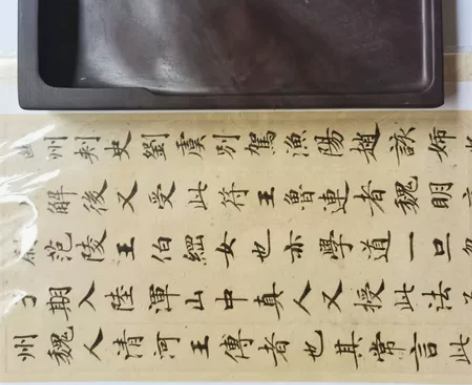 州刺史劉虞別駕漁陽趙該姊
解後又受此符王魯連者魏明
范陵王伯綱女也亦學道一旦
期入陸渾山中真人又授此法
州魏人清河王傅者也其常言此